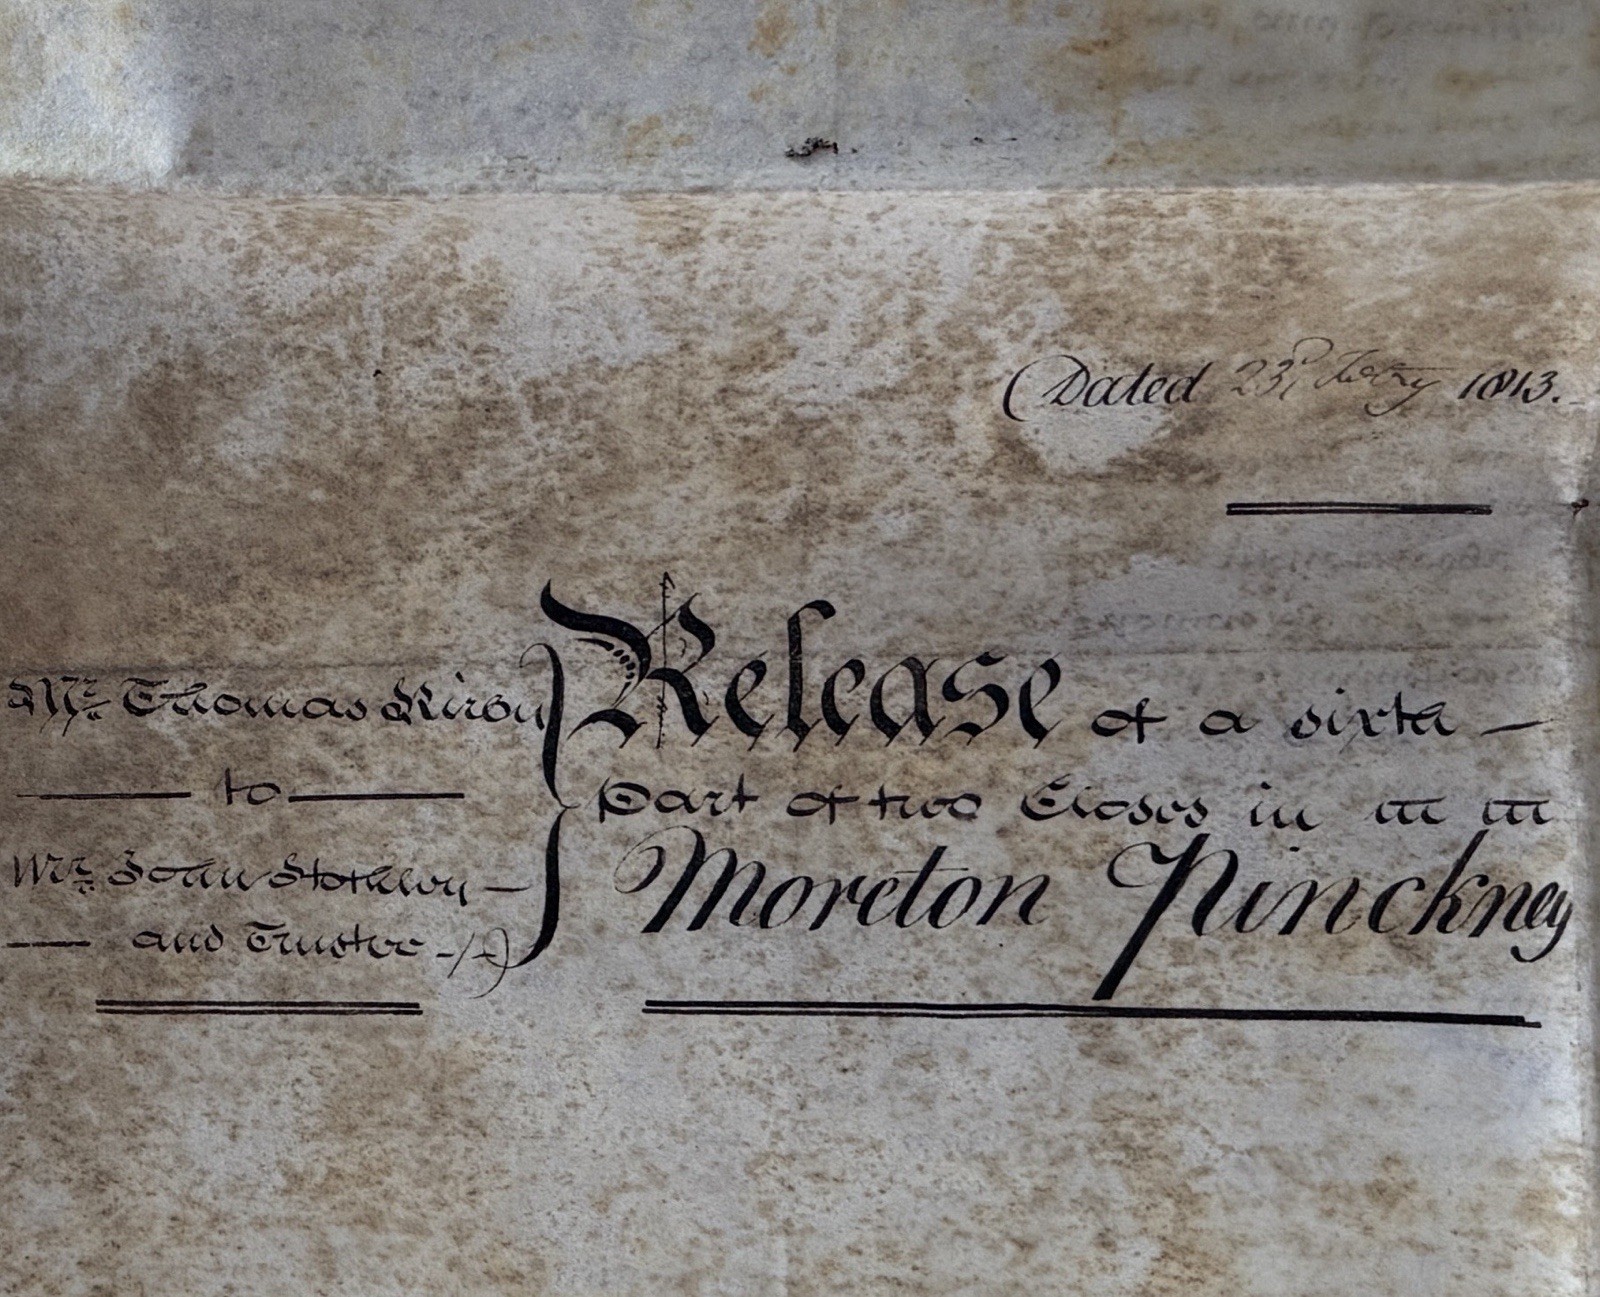 Dated 23d Febry 1813.
Mr. Thomas
to
Mr. John
and Trustee
Release of a sixth
Part of two Closes in
Moreton Pinckney